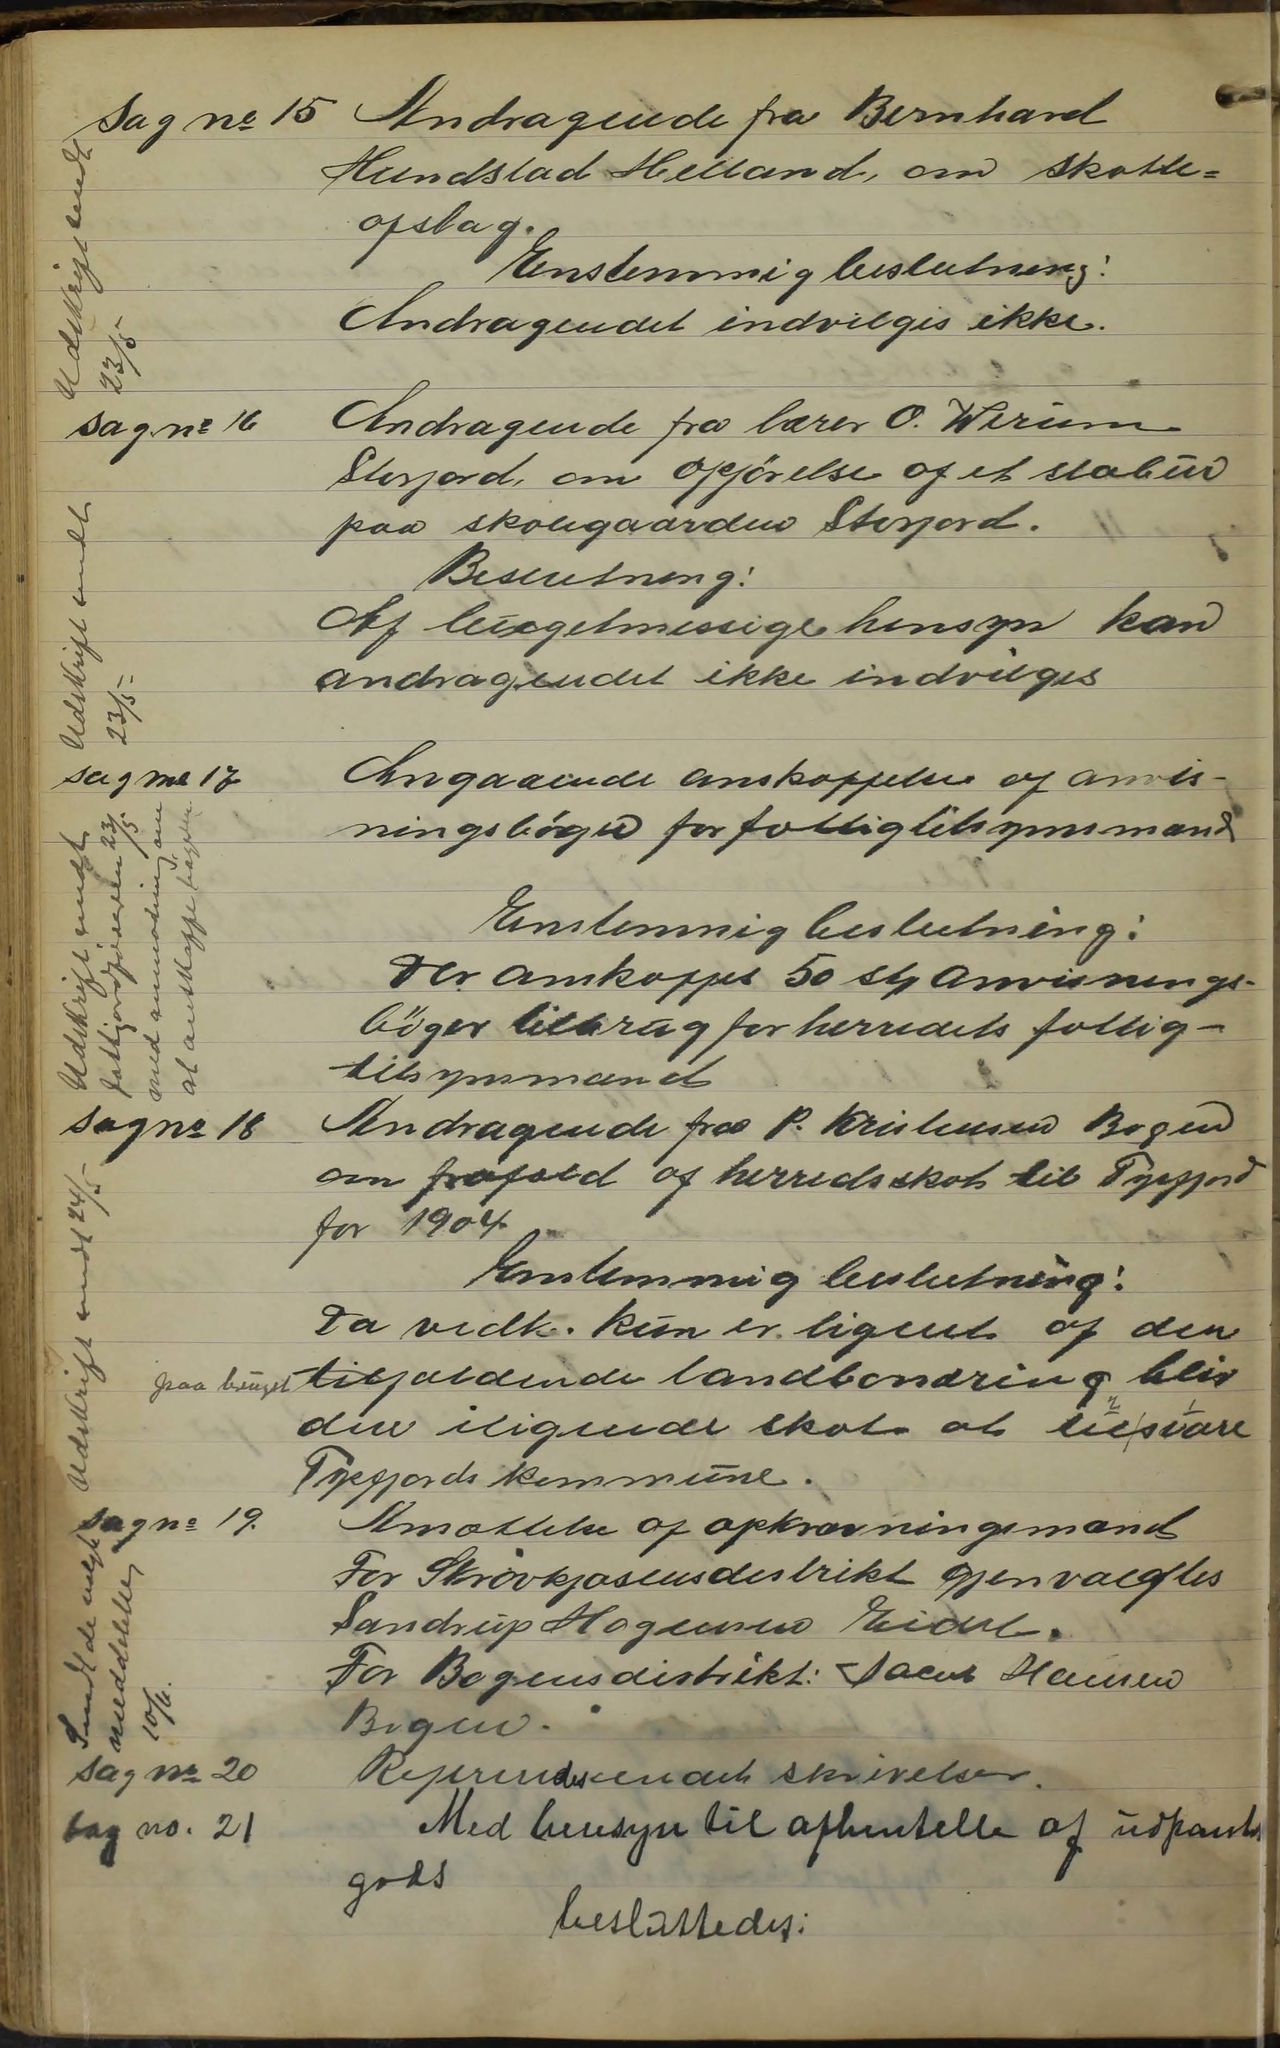 Sag no 15 Andragende fra Bernhard
Hundstad Helland, om skatte=
afslag.
Enstemmig beslutning:
Andragendet indvilges ikke.
Udskrift sendt
23/5
Sag no 16 Andragende fra lærer O. Werum
Storjord, om opførelse af et stabur
paa skolegaarden Storjord.
Beslutning:
Af budgetmessige hensyn kan
andragendet ikke indvilges
Udskrift sendt
23/5
Sag no 17 Angaaende anskaffelse af anvis-
ningsbøger for fattigtilsynsmænd
Enstemmig beslutning:
Der anskaffes 50 stk anvisnings-
bøger til brug for herredets fattig-
tilsynsmænd
Udskrift sendt
fattigordføreren 23/5
med anmodning om
at anskaffe bøgerne
Sag no 18 Andragende fra P. Kristensen Bogen
om frafald af herredsskat til Tysfjord
for 1904
Enstemmig beslutning:
Da vedk. kun er lignet af den
paa bruget tilfaldende landbonæring bliv
den ilignede skat at tilsvare
Tysfjords kommune.
Udskrift sendt 24/5
Sag no 19. Ansættelse af opkrævningsmænd
For Skrovkjosensdistrikt gjenvalgtes
Sandrup Hagensen Eidet.
For Bogensdistrikt: Jacob Hansen
Bogen.
Sendt de valgte
meddelelse
10/6.
Sag no 20 Refereredes endel skrivelser.
Sag no. 21 Med hensyn til afhentelse af udpantet
gods
besluttedes: